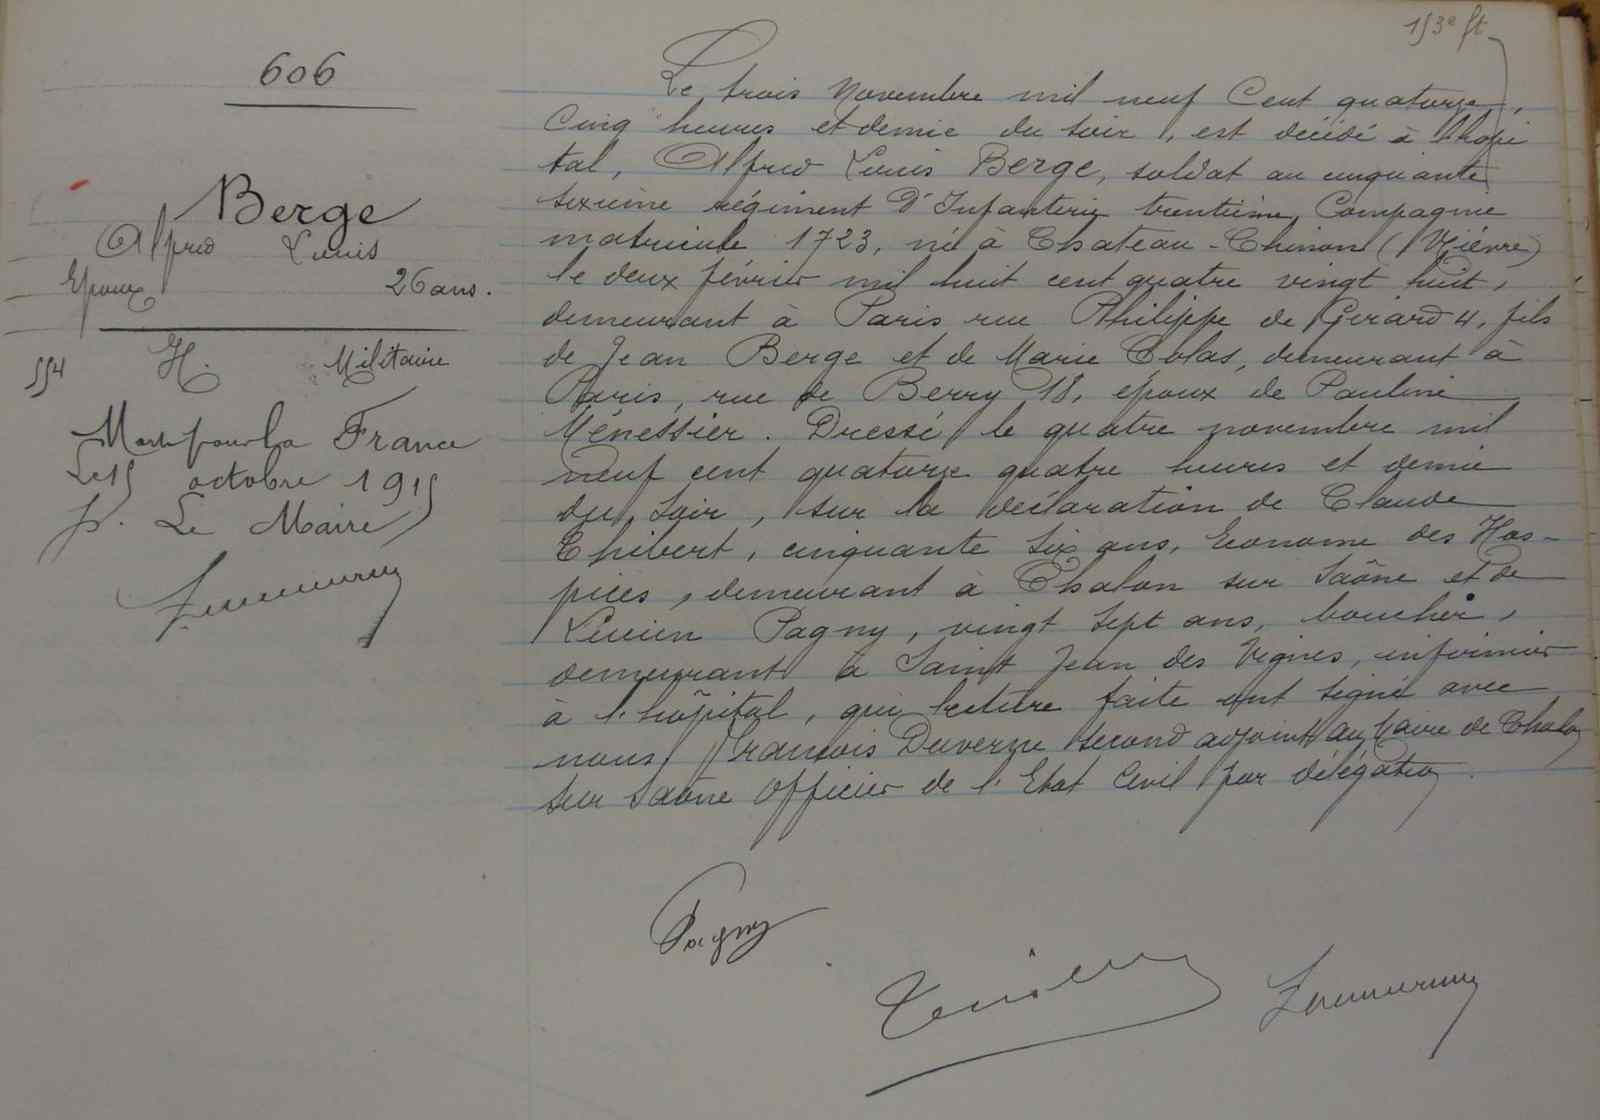 153e ft
606
Berge
Alfred Louis
Epoux 26 ans.
554 H. Militaire
Mort pour la France
Le 15 octobre 1915
p. Le Maire
Le trois Novembre mil neuf Cent quatorze,
Cinq heures et demie du soir, est décédé à l'hopi
tal, Alfred Louis Berge, soldat au cinquante
sixième régiment d'Infanterie trentième Compagnie
matricule 1723, né à Chateau-Chinon (Nièvre)
le deux février mil huit cent quatre vingt huit,
demeurant à Paris rue Philippe de Girard 4, fils
de Jean Berge et de Marie Colas, demeurant à
Paris, rue de Berry 18, époux de Pauline
Ménessier. Dressé le quatre novembre mil
neuf cent quatorze quatre heures et demie
du soir, sur la déclaration de Claude
Chibert, cinquante six ans, Econome des Hos-
pices, demeurant à Chalon sur Saône et de
Lucien Pagny, vingt sept ans, boucher,
demeurant à Saint Jean des Vignes, infirmier
à l'hôpital, qui lecture faite ont signé avec
nous François Duverne second adjoint au Maire de Chalon
sur Saône Officier de l'Etat Civil par délégation.
Pagny